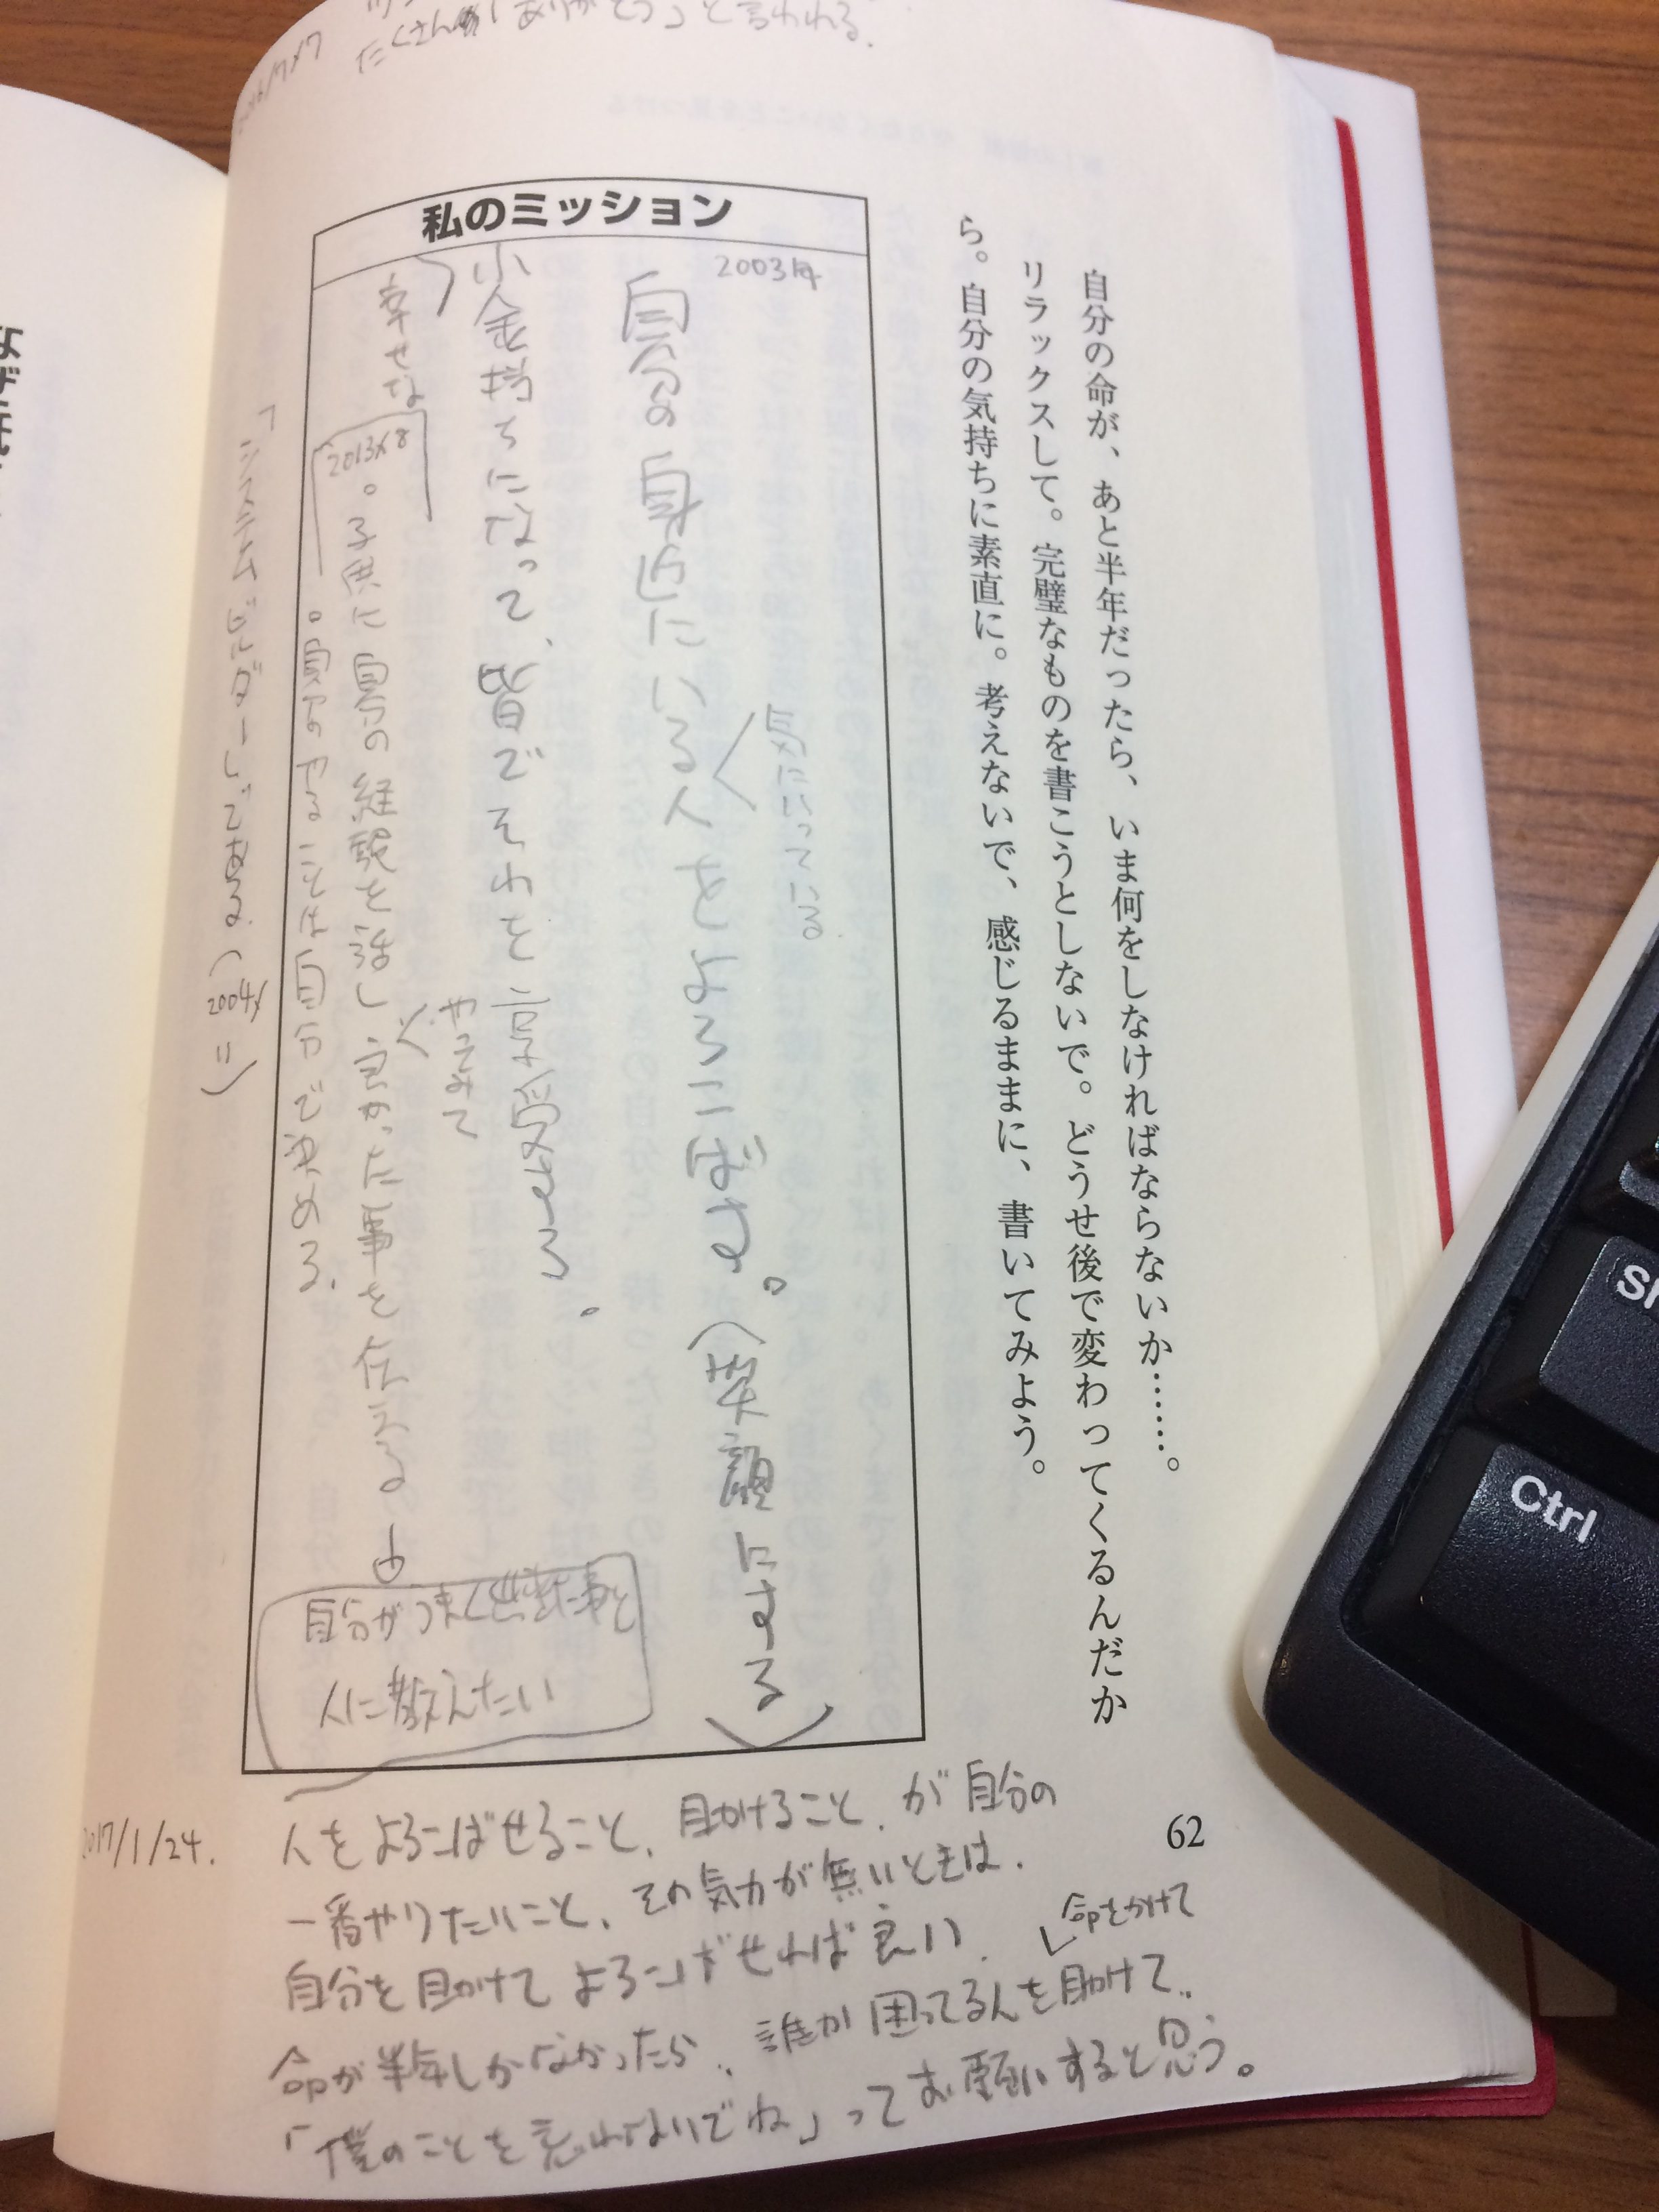 たくさん「ありがとう」と言われる。
自分の命が、あと半年だったら、いま何をしなければならないか……。
リラックスして。完璧なものを書こうとしないで。どうせ後で変わってくるんだか
ら。自分の気持ちに素直に。考えないで、感じるままに、書いてみよう。
私のミッション
2003年
気にいっている
自分の身近にいる人をよろこばす。(笑顔にする)
小金持ちになって、皆でそれを享受する。
幸せな
やってみて
2013
。子供に自分の経験を話し良かった事を伝える
。自分のやることは自分で決める。
「システムビルダー」である。(2004
自分がうまく出来た事を
人に教えたい
62
2017/1/24.
人をよろこばせること、助けること、が自分の
一番やりたいこと、その気力が無いときは、
自分を助けてよろこばせれば良い。
命をかけて
命が半年しかなかったら、誰か困ってる人を助けて、
「僕のことを忘れないでね」ってお願いすると思う。
Ctrl